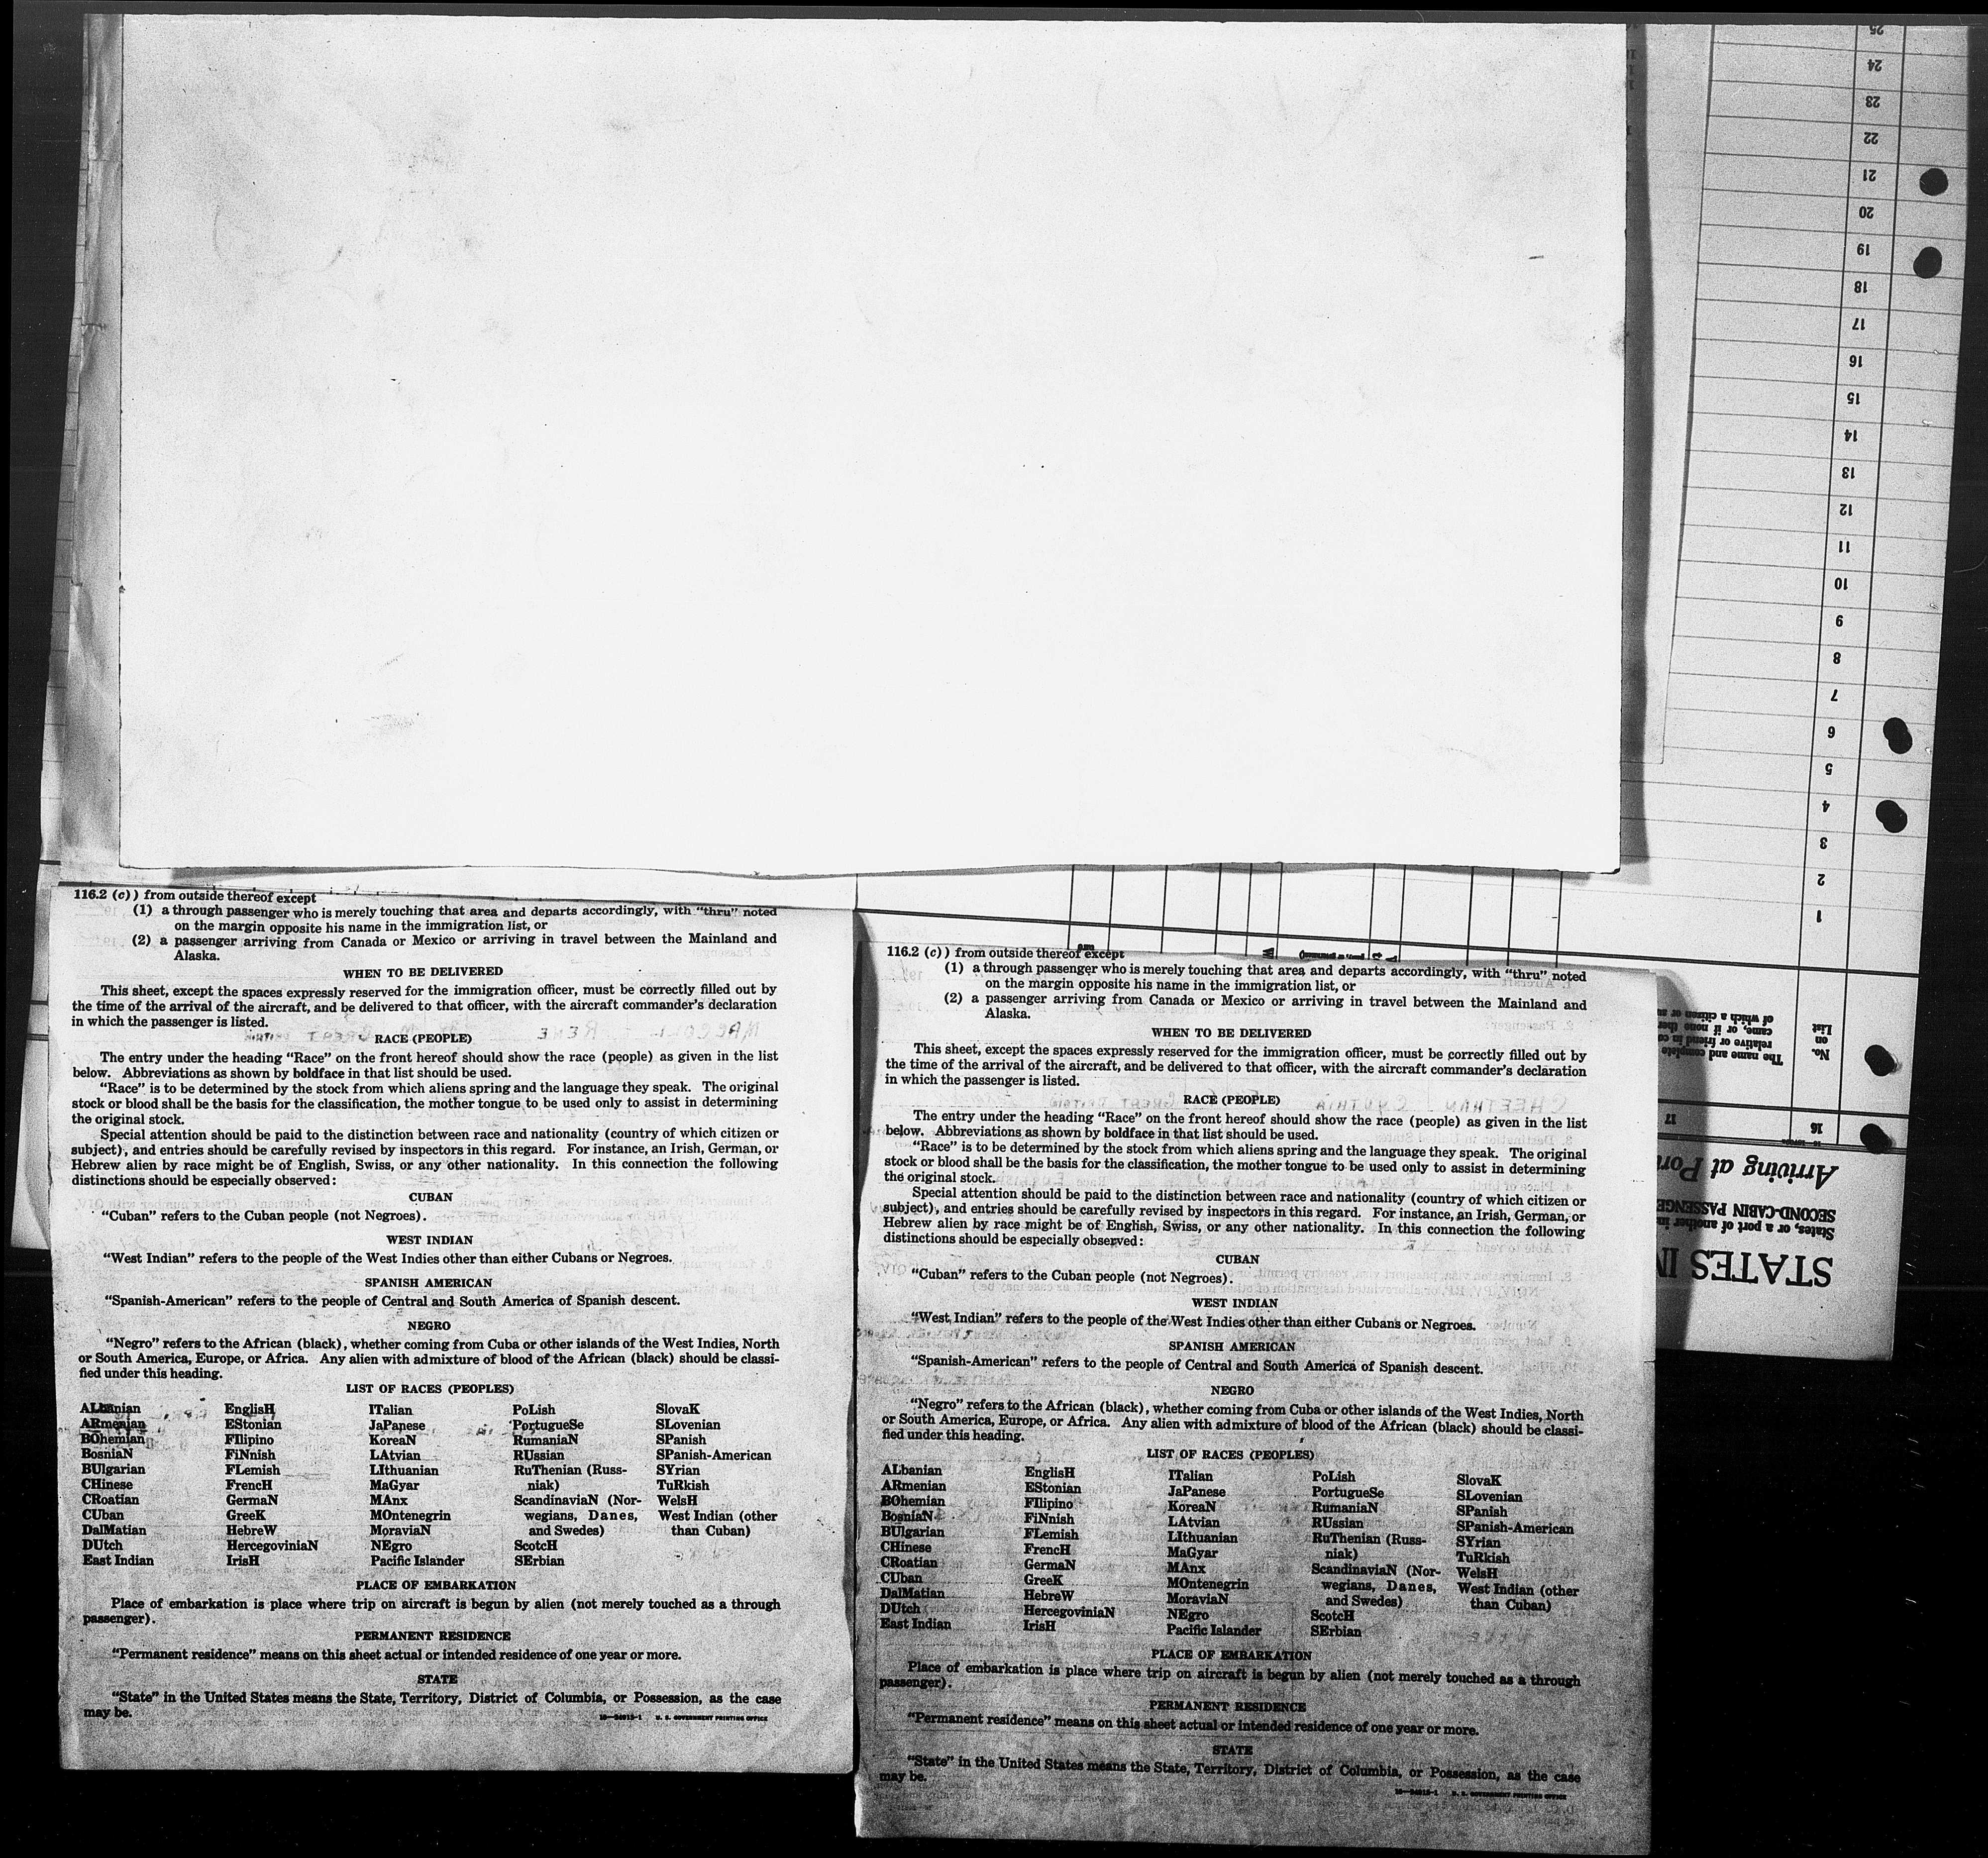 116.2 (c)) from outside thereof except
(1) a through passenger who is merely touching that area and departs accordingly, with "thru" noted
on the margin opposite his name in the immigration list, or
(2) a passenger arriving from Canada or Mexico or arriving in travel between the Mainland and
Alaska.
WHEN TO BE DELIVERED
This sheet, except the spaces expressly reserved for the immigration officer, must be correctly filled out by
the time of the arrival of the aircraft, and be delivered to that officer, with the aircraft commander's declaration
in which the passenger is listed.
RACE (PEOPLE)
The entry under the heading "Race" on the front hereof should show the race (people) as given in the list
below. Abbreviations as shown by boldface in that list should be used.
"Race" is to be determined by the stock from which aliens spring and the language they speak. The original
stock or blood shall be the basis for the classification, the mother tongue to be used only to assist in determining
the original stock.
Special attention should be paid to the distinction between race and nationality (country of which citizen or
subject), and entries should be carefully revised by inspectors in this regard. For instance, an Irish, German, or
Hebrew alien by race might be of English, Swiss, or any other nationality. In this connection the following
distinctions should be especially observed:
CUBAN
"Cuban" refers to the Cuban people (not Negroes).
WEST INDIAN
"West Indian" refers to the people of the West Indies other than either Cubans or Negroes.
SPANISH AMERICAN
"Spanish-American" refers to the people of Central and South America of Spanish descent.
NEGRO
"Negro" refers to the African (black), whether coming from Cuba or other islands of the West Indies, North
or South America, Europe, or Africa. Any alien with admixture of blood of the African (black) should be classi-
fied under this heading.
LIST OF RACES (PEOPLES)
ALbanian EnglisH ITalian PoLish SlovaK
ARmenian EStonian JaPanese PortugueSe SLovenian
BOhemian FIlipino KoreaN RumaniaN SPanish
BosniaN FiNnish LAtvian RUssian SPanish-American
BUlgarian FLemish LIthuanian RuThenian (Russ- SYrian
CHinese FrencH MaGyar niak) TuRkish
CRoatian GermaN MAnx ScandinaviaN (Nor- WelsH
CUban GreeK MOntenegrin wegians, Danes, West Indian (other
DalMatian HebreW MoraviaN and Swedes) than Cuban)
DUtch HercegoviniaN NEgro ScotcH
East Indian IrisH Pacific Islander SErbian
PLACE OF EMBARKATION
Place of embarkation is place where trip on aircraft is begun by alien (not merely touched as a through
passenger).
PERMANENT RESIDENCE
"Permanent residence" means on this sheet actual or intended residence of one year or more.
STATE
"State" in the United States means the State, Territory, District of Columbia, or Possession, as the case
may be.
U. S. GOVERNMENT PRINTING OFFICE
116.2 (c)) from outside thereof except
(1) a through passenger who is merely touching that area and departs accordingly, with "thru" noted
on the margin opposite his name in the immigration list, or
(2) a passenger arriving from Canada or Mexico or arriving in travel between the Mainland and
Alaska.
WHEN TO BE DELIVERED
This sheet, except the spaces expressly reserved for the immigration officer, must be correctly filled out by
the time of the arrival of the aircraft, and be delivered to that officer, with the aircraft commander's declaration
in which the passenger is listed.
RACE (PEOPLE)
The entry under the heading "Race" on the front hereof should show the race (people) as given in the list
below. Abbreviations as shown by boldface in that list should be used.
"Race" is to be determined by the stock from which aliens spring and the language they speak. The original
stock or blood shall be the basis for the classification, the mother tongue to be used only to assist in determining
the original stock.
Special attention should be paid to the distinction between race and nationality (country of which citizen or
subject), and entries should be carefully revised by inspectors in this regard. For instance, an Irish, German, or
Hebrew alien by race might be of English, Swiss, or any other nationality. In this connection the following
distinctions should be especially observed:
CUBAN
"Cuban" refers to the Cuban people (not Negroes).
WEST INDIAN
"West Indian" refers to the people of the West Indies other than either Cubans or Negroes.
SPANISH AMERICAN
"Spanish-American" refers to the people of Central and South America of Spanish descent.
NEGRO
"Negro" refers to the African (black), whether coming from Cuba or other islands of the West Indies, North
or South America, Europe, or Africa. Any alien with admixture of blood of the African (black) should be classi-
fied under this heading.
LIST OF RACES (PEOPLES)
ALbanian EnglisH ITalian PoLish SlovaK
ARmenian EStonian JaPanese PortugueSe SLovenian
BOhemian FIlipino KoreaN RumaniaN SPanish
BosniaN FiNnish LAtvian RUssian SPanish-American
BUlgarian FLemish LIthuanian RuThenian (Russ- SYrian
CHinese FrencH MaGyar niak) TuRkish
CRoatian GermaN MAnx ScandinaviaN (Nor- WelsH
CUban GreeK MOntenegrin wegians, Danes, West Indian (other
DalMatian HebreW MoraviaN and Swedes) than Cuban)
DUtch HercegoviniaN NEgro ScotcH
East Indian IrisH Pacific Islander SErbian
PLACE OF EMBARKATION
Place of embarkation is place where trip on aircraft is begun by alien (not merely touched as a through
passenger).
PERMANENT RESIDENCE
"Permanent residence" means on this sheet actual or intended residence of one year or more.
STATE
"State" in the United States means the State, Territory, District of Columbia, or Possession, as the case
may be.
U. S. GOVERNMENT PRINTING OFFICE
STATES IN
States, or a port of another
SECOND-CABIN PASSENGE
Arriving at Por
16 17
No.
on
List
The name and complete
relative or friend in
came, or if none
of which a citizen or
1
2
3
4
5
6
7
8
9
10
11
12
13
14
15
16
17
18
19
20
21
22
23
24
25